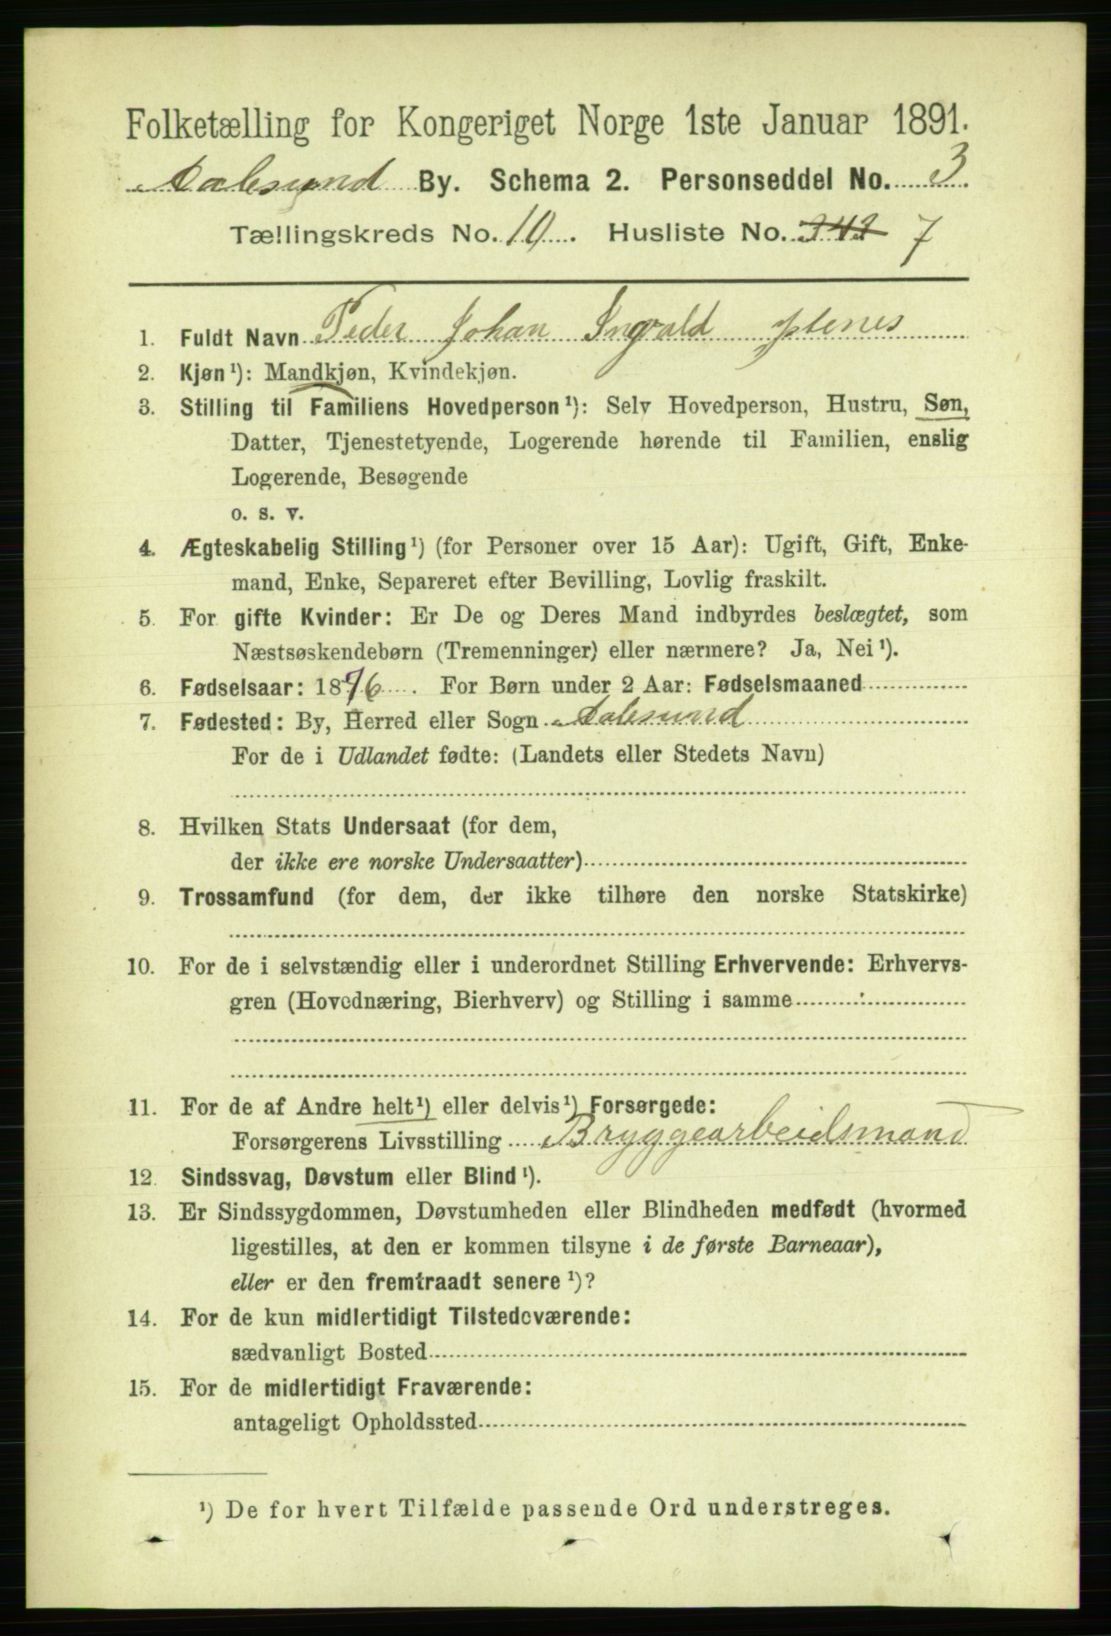 Folketælling for Kongeriget Norge 1ste Januar 1891.
Aalesund By. Schema 2. Personseddel No. 3
Tællingskreds No. 10. Husliste No. 343 7
1. Fuldt Navn Peder Johan Ingvald
2. Kjøn¹): Mandkjøn, Kvindekjøn.
3. Stilling til Familiens Hovedperson¹): Selv Hovedperson, Hustru, Søn,
Datter, Tjenestetyende, Logerende hørende til Familien, enslig
Logerende, Besøgende
o. s. v.
4. Ægteskabelig Stilling¹) (for Personer over 15 Aar): Ugift, Gift, Enke-
mand, Enke, Separeret efter Bevilling, Lovlig fraskilt.
5. For gifte Kvinder: Er De og Deres Mand indbyrdes beslægtet, som
Næstsøskendebørn (Tremenninger) eller nærmere? Ja, Nei¹).
6. Fødselsaar: 1876. For Børn under 2 Aar: Fødselsmaaned
7. Fødested: By, Herred eller Sogn Aalesund
For de i Udlandet fødte: (Landets eller Stedets Navn)
8. Hvilken Stats Undersaat (for dem,
der ikke ere norske Undersaatter)
9. Trossamfund (for dem, der ikke tilhøre den norske Statskirke)
10. For de i selvstændig eller i underordnet Stilling Erhvervende: Erhvervs-
gren (Hovednæring, Bierhverv) og Stilling i samme
11. For de af Andre helt¹) eller delvis¹) Forsørgede:
Forsørgerens Livsstilling Bryggearbeidsmand
12. Sindssvag, Døvstum eller Blind¹).
13. Er Sindssygdommen, Døvstumheden eller Blindheden medfødt (hvormed
ligestilles, at den er kommen tilsyne i de første Barneaar),
eller er den fremtraadt senere¹)?
14. For de kun midlertidigt Tilstedeværende:
sædvanligt Bosted
15. For de midlertidigt Fraværende:
antageligt Opholdssted
¹) De for hvert Tilfælde passende Ord understreges.